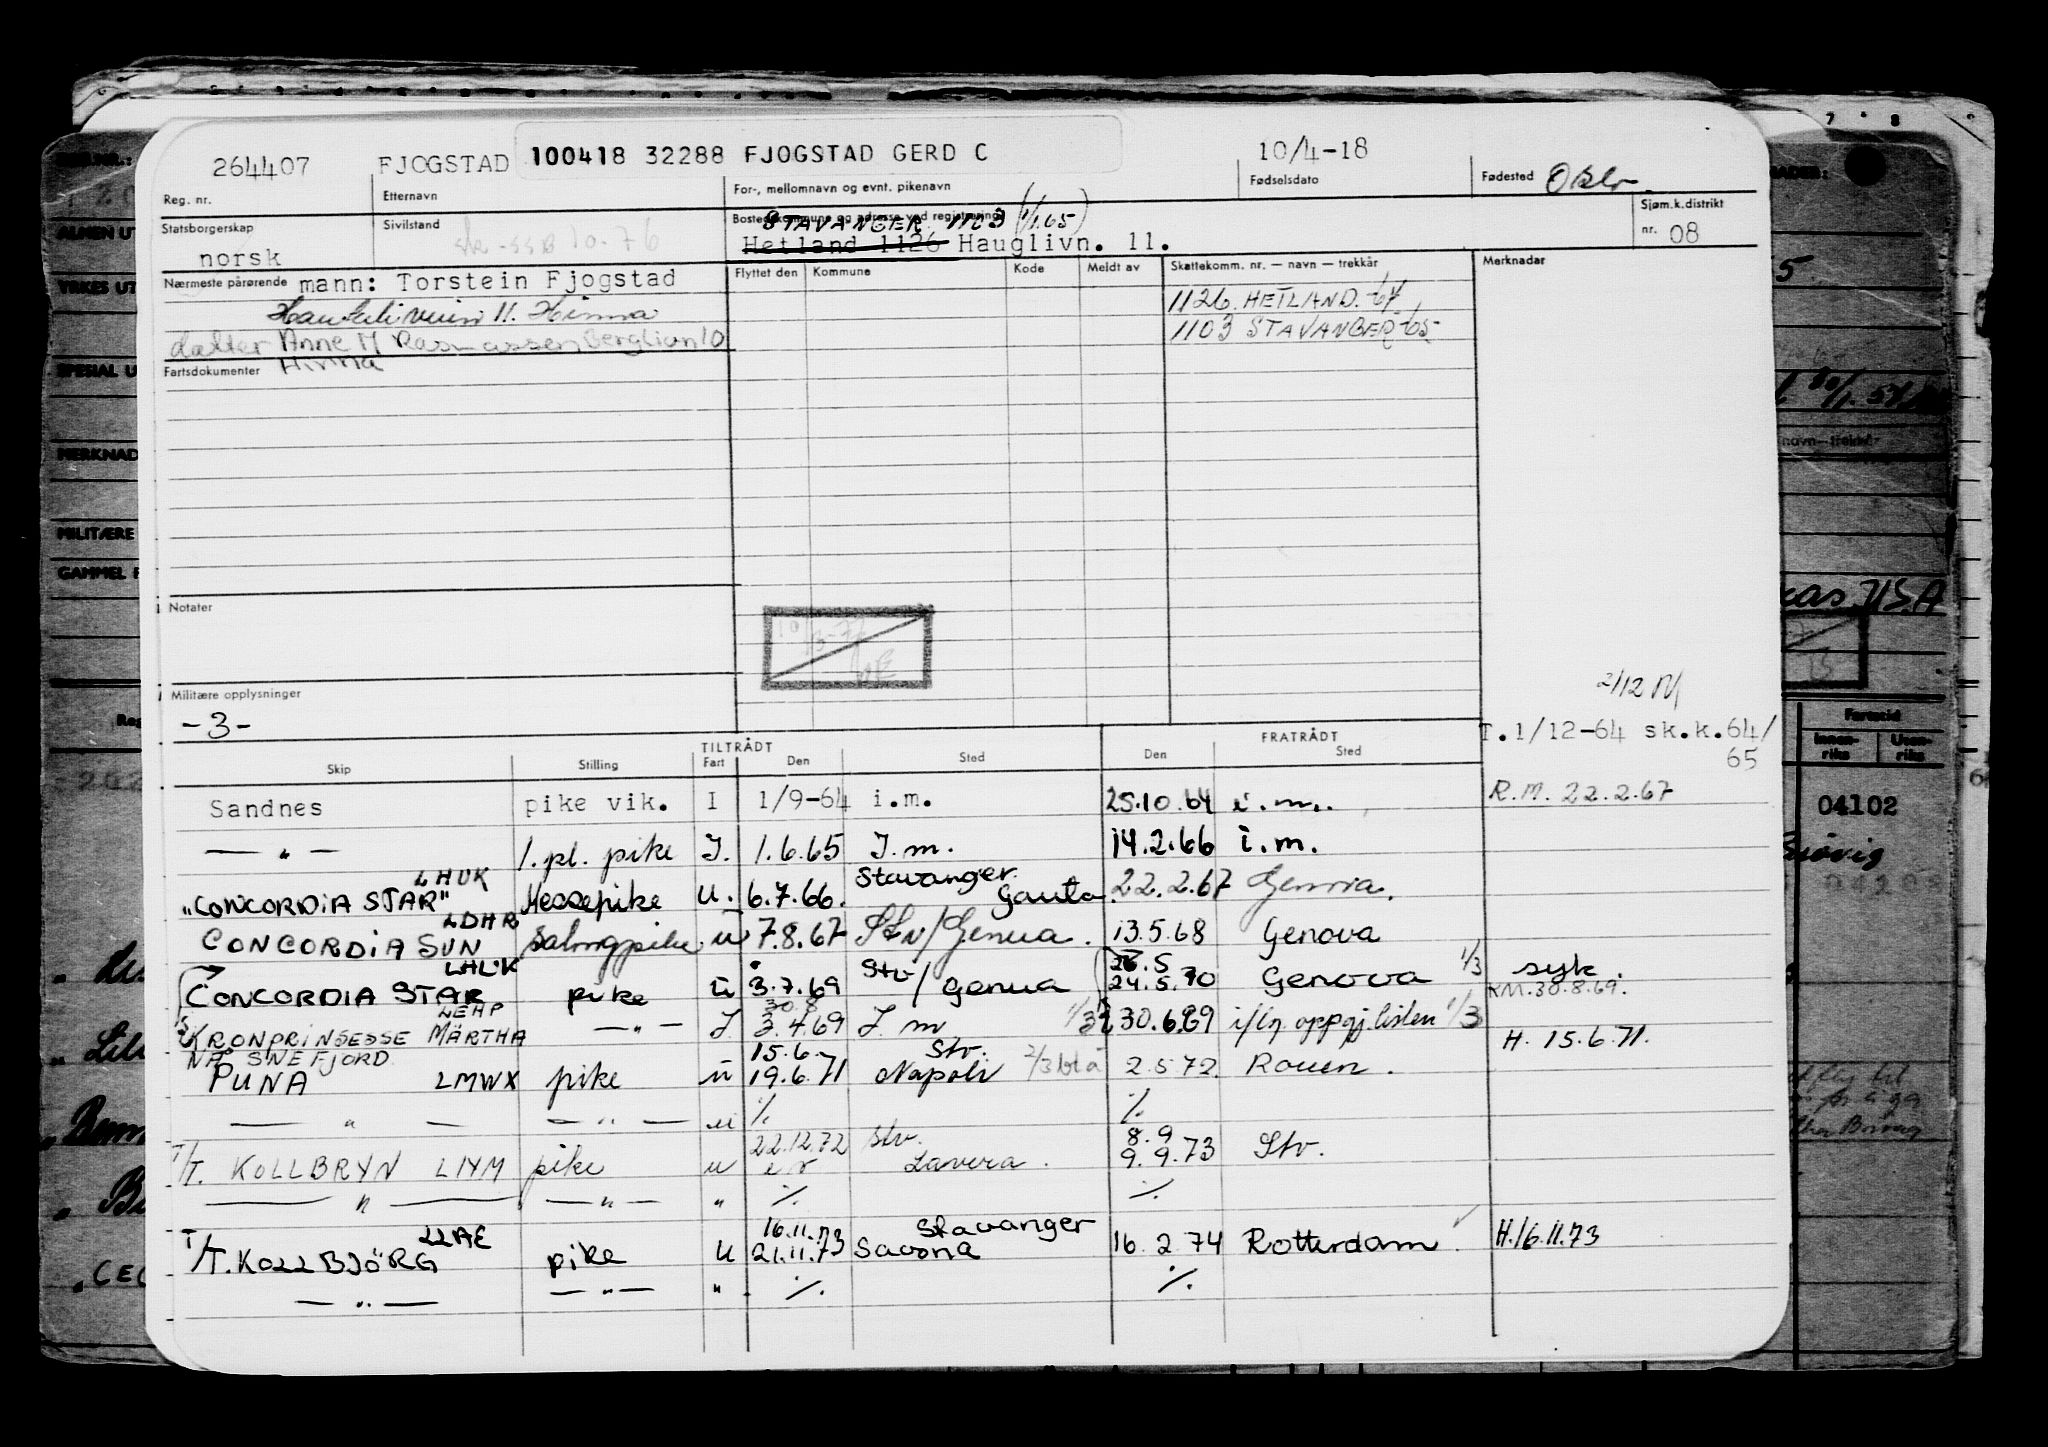 264407 FJOGSTAD 100418 32288 FJOGSTAD GERD C 10/4-18
Reg. nr. Etternavn For-, mellomnavn og evnt. pikenavn Fødselsdato Fødested Oslo
Statsborgerskap Sivilstand Bostedskommune og adresse ved registrering Sjøm.k.distrikt
STAVANGER 1103 (1/1.65)
norsk Hetland 1126 Hauglivn. 11. nr. 08
Nærmeste pårørende mann: Torstein Fjogstad Flyttet den Kommune Kode Meldt av Skattekomm. nr. — navn — trekkår Merknader
11. Hinna 1126 HETLAND -64
datter Anne M Rasmussen Berglivn 10 1103 STAVANGER -65
Fartsdokumenter Hinna
Notater
Militære opplysninger 2/12
-3- T.1/12-64 sk.k.64/
65
TILTRÅDT FRATRÅDT
Skip Stilling Fart Den Sted Den Sted
Sandnes pike vik. I 1/9-64 i.m. 25.10.64 i.m. R.M. 22.2.67
— " — 1. pl. pike I. 1.6.65 I.m. 14.2.66 i.m.
LHUK Stavanger
"CONCORDIA STAR" Messepike U. 6.7.66. Gauta. 22.2.67 Genova.
LDHR
CONCORDIA SUN Salongpike u 7.8.67 Stv/Genua. 13.5.68 Genova
LHUK 26.5
CONCORDIA STAR pike u 3.7.69 Stv/Genua 24.5.70 Genova 1/3 syk.
LEHP 30.8 RM.30.8.69.
KRONPRINSESSE MÄRTHA — " — I. 3.4.69 I.m 1/3 30.6.69 i/flg oppgj.listen 1/3
NÅ SINEFJORD 15.6. Stv. H. 15.6.71.
PUNA LMWX pike u 19.6.71 Napoli 2/3 blå 2.5.72 Rouen.
— " — — " — u % %
22.12.72 Stv. 8.9
T/T. KOLLBRYN LIYM pike u Lavera. 9.9.73 Stv.
— " — — " — " % %
LLAE 16.11.73 Stavanger
T/T. KOLLBJÖRG pike U 21.11.73 Savona 16.2.74 Rotterdam. H.16.11.73
— " — — " — " % %
7 8
ALMEN UT
YRKES UT
SPESIAL U
MERKNAD
MILITÆRE
GAMMEL F
navn—trekkår
USA
Fartstid
Innen-riks Uten-riks
04102